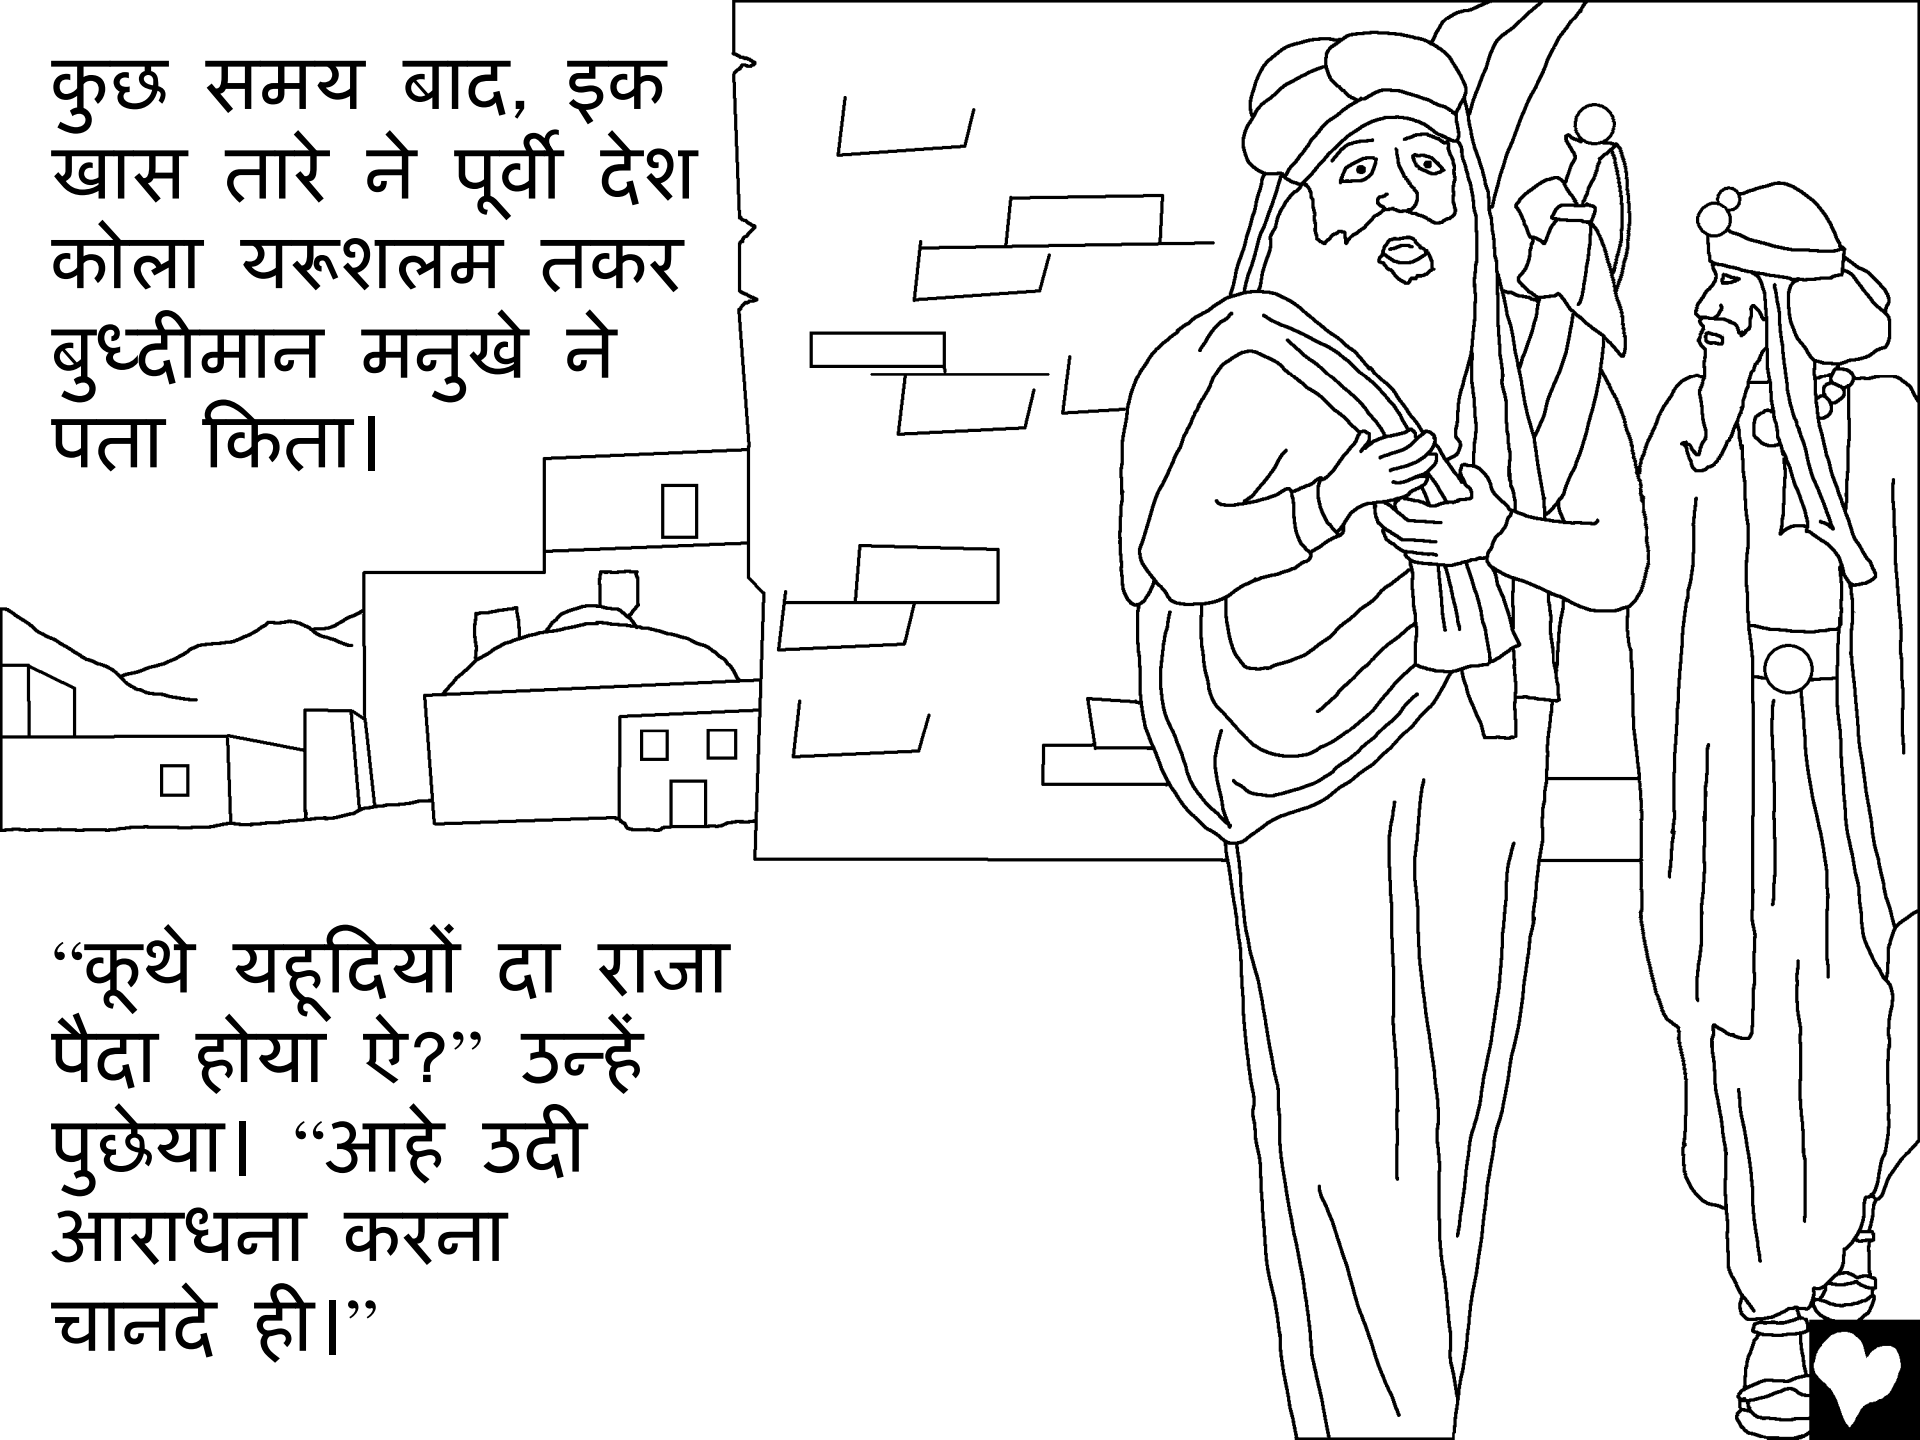 कुछ समय बाद, इक
खास तारे ने पूर्वी देश
कोला यरूशलम तकर
बुध्दीमान मनुखे ने
पता किता।
“कूथे यहूदियों दा राजा
पैदा होया ऐ?” उन्हें
पुछेया। “आहे उदी
आराधना करना
चानदे ही।”